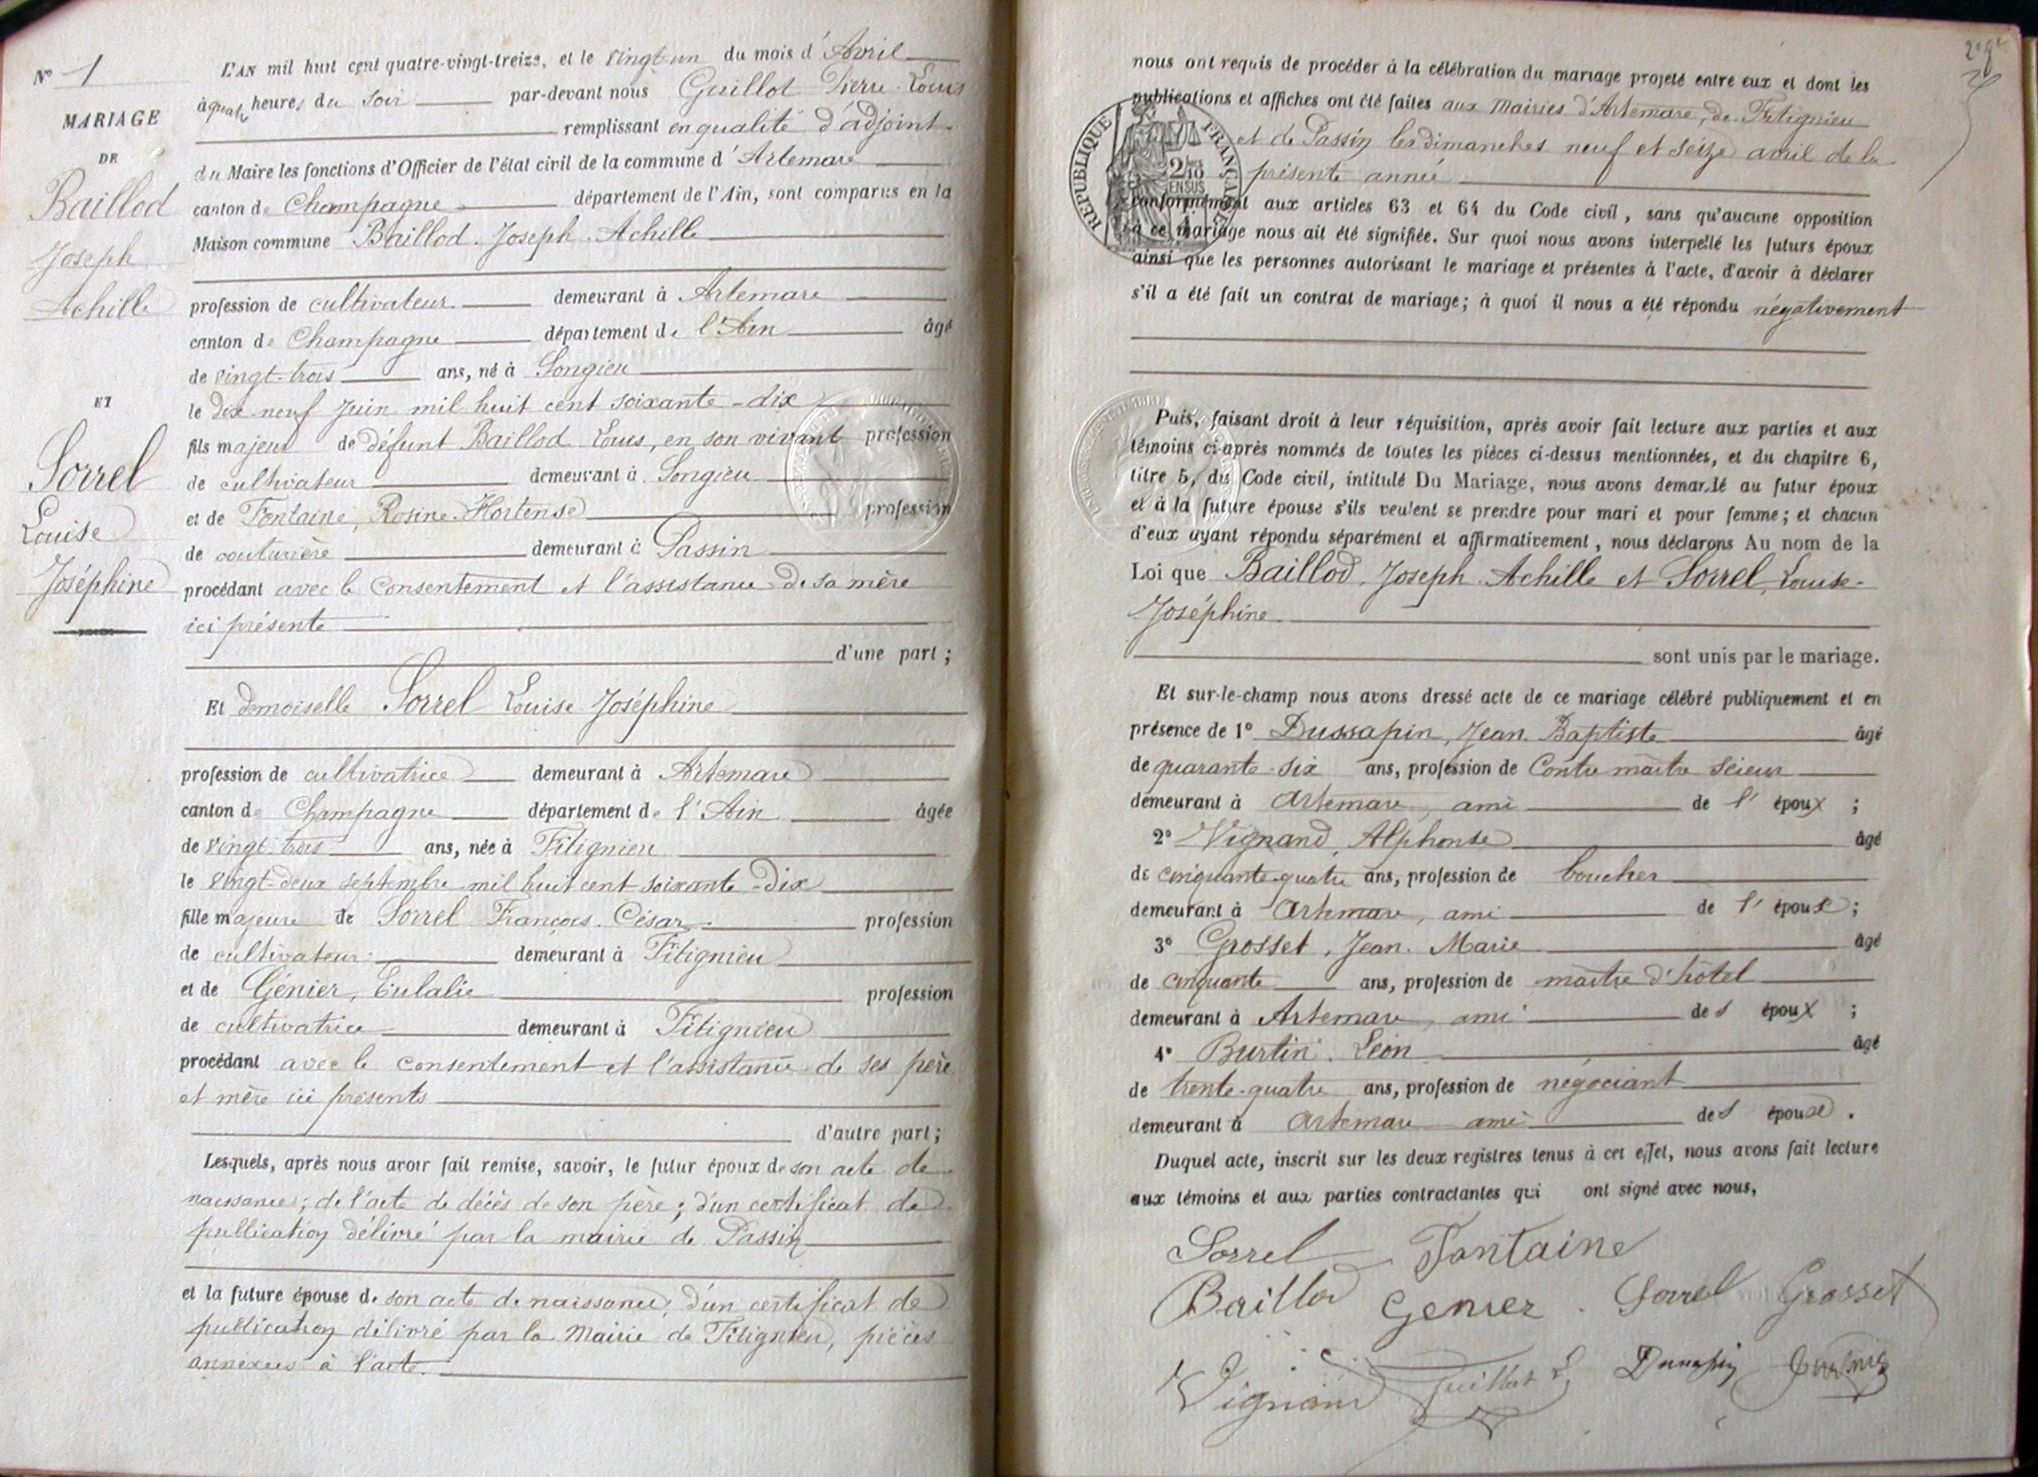 N° 1
MARIAGE
DE
Baillod
Joseph
Achille
ET
Sorrel
Louise
Joséphine
L'AN mil huit cent quatre-vingt-treize, et le vingt-un du mois d'Avril
à quatre heures du soir par-devant nous Guillot Pierre Louis
remplissant en qualité d'adjoint
du Maire les fonctions d'Officier de l'état civil de la commune d'Artemare
canton de Champagne département de l'Ain, sont comparus en la
Maison commune Baillod Joseph Achille
profession de cultivateur demeurant à Artemare
canton de Champagne département de l'Ain âgé
de vingt-trois ans, né à Songieu
le dix neuf Juin mil huit cent soixante-dix
fils majeur de défunt Baillod Louis, en son vivant profession
de cultivateur demeurant à Songieu
et de Fontaine, Rosine Hortense profession
de couturière demeurant à Passin
procédant avec le consentement et l'assistance de sa mère
ici présente
d'une part;
Et demoiselle Sorrel Louise Joséphine
profession de cultivatrice demeurant à Artemare
canton de Champagne département de l'Ain âgée
de vingt-trois ans, née à Fitignieu
le vingt-deux septembre mil huit cent soixante-dix
fille majeure de Sorrel François César profession
de cultivateur demeurant à Fitignieu
et de Génier, Eulalie profession
de cultivatrice demeurant à Fitignieu
procédant avec le consentement et l'assistance de ses père
et mère ici présents
d'autre part;
Lesquels, après nous avoir fait remise, savoir, le futur époux de son acte de
naissance; de l'acte de décès de son père; d'un certificat de
publication délivré par la mairie de Passin
et la future épouse de son acte de naissance, d'un certificat de
publication délivré par la Mairie de Fitignieu, pièces
annexées à l'acte.
nous ont requis de procéder à la célébration du mariage projeté entre eux et dont les
publications et affiches ont été faites aux Mairies d'Artemare, de Fitignieu
et de Passin les dimanches neuf et seize avril de la
présente année
conformément aux articles 63 et 64 du Code civil, sans qu'aucune opposition
à ce mariage nous ait été signifiée. Sur quoi nous avons interpellé les futurs époux
ainsi que les personnes autorisant le mariage et présentes à l'acte, d'avoir à déclarer
s'il a été fait un contrat de mariage; à quoi il nous a été répondu négativement
RÉPUBLIQUE FRANÇAISE
Puis, faisant droit à leur réquisition, après avoir fait lecture aux parties et aux
témoins ci-après nommés de toutes les pièces ci-dessus mentionnées, et du chapitre 6,
titre 5, du Code civil, intitulé Du Mariage, nous avons demandé au futur époux
et à la future épouse s'ils veulent se prendre pour mari et pour femme; et chacun
d'eux ayant répondu séparément et affirmativement, nous déclarons Au nom de la
Loi que Baillod Joseph Achille et Sorrel Louise
Joséphine
sont unis par le mariage.
Et sur-le-champ nous avons dressé acte de ce mariage célébré publiquement et en
présence de 1° Dussapin, Jean Baptiste âgé
de quarante-six ans, profession de Contre maître scieur
demeurant à Artemare, ami de l'époux;
2° Vignand, Alphonse âgé
de cinquante-quatre ans, profession de boucher
demeurant à Artemare, ami de l'épouse;
3° Grosset, Jean Marie âgé
de cinquante ans, profession de maître d'hôtel
demeurant à Artemare, ami de l'époux;
4° Burtin Léon âgé
de trente-quatre ans, profession de négociant
demeurant à Artemare ami de l'épouse.
Duquel acte, inscrit sur les deux registres tenus à cet effet, nous avons fait lecture
aux témoins et aux parties contractantes qui ont signé avec nous,
Sorrel Fontaine
Baillod Genier Sorrel Grosset
Vignand Guillot L Dussapin